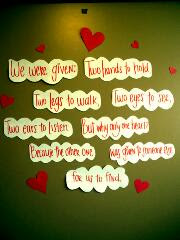 We were given: Two hands to hold.
Two legs to walk, Two eyes to see,
Two ears to listen. But why only one heart?
Because the other one was given to someone else
for us to find.